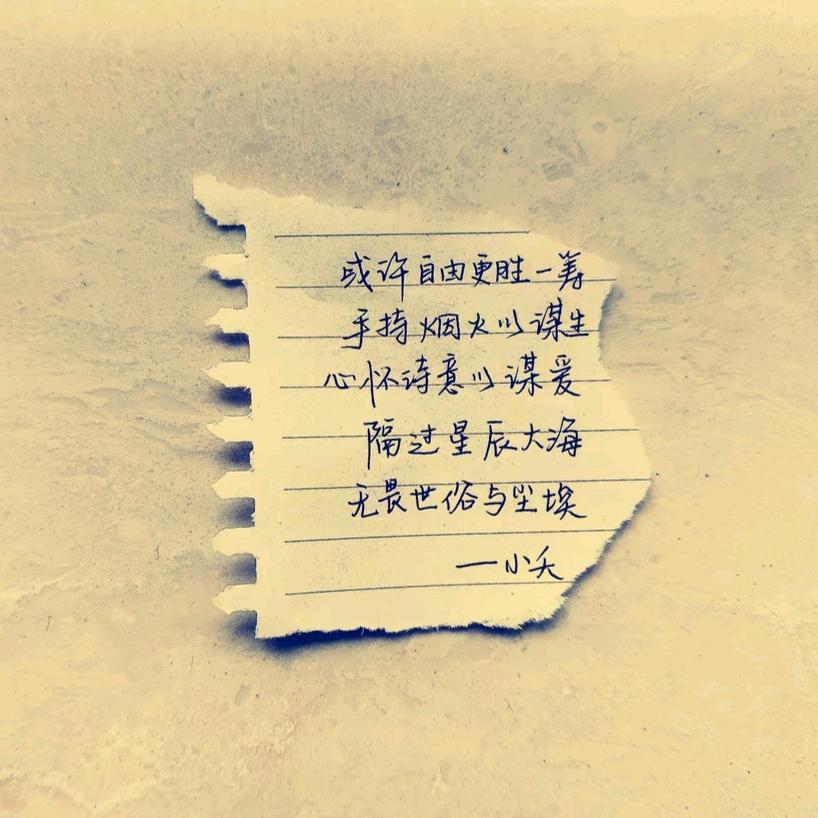 或许自由更胜一筹
手持烟火以谋生
心怀诗意以谋爱
隔过星辰大海
无畏世俗与尘埃
一小夭